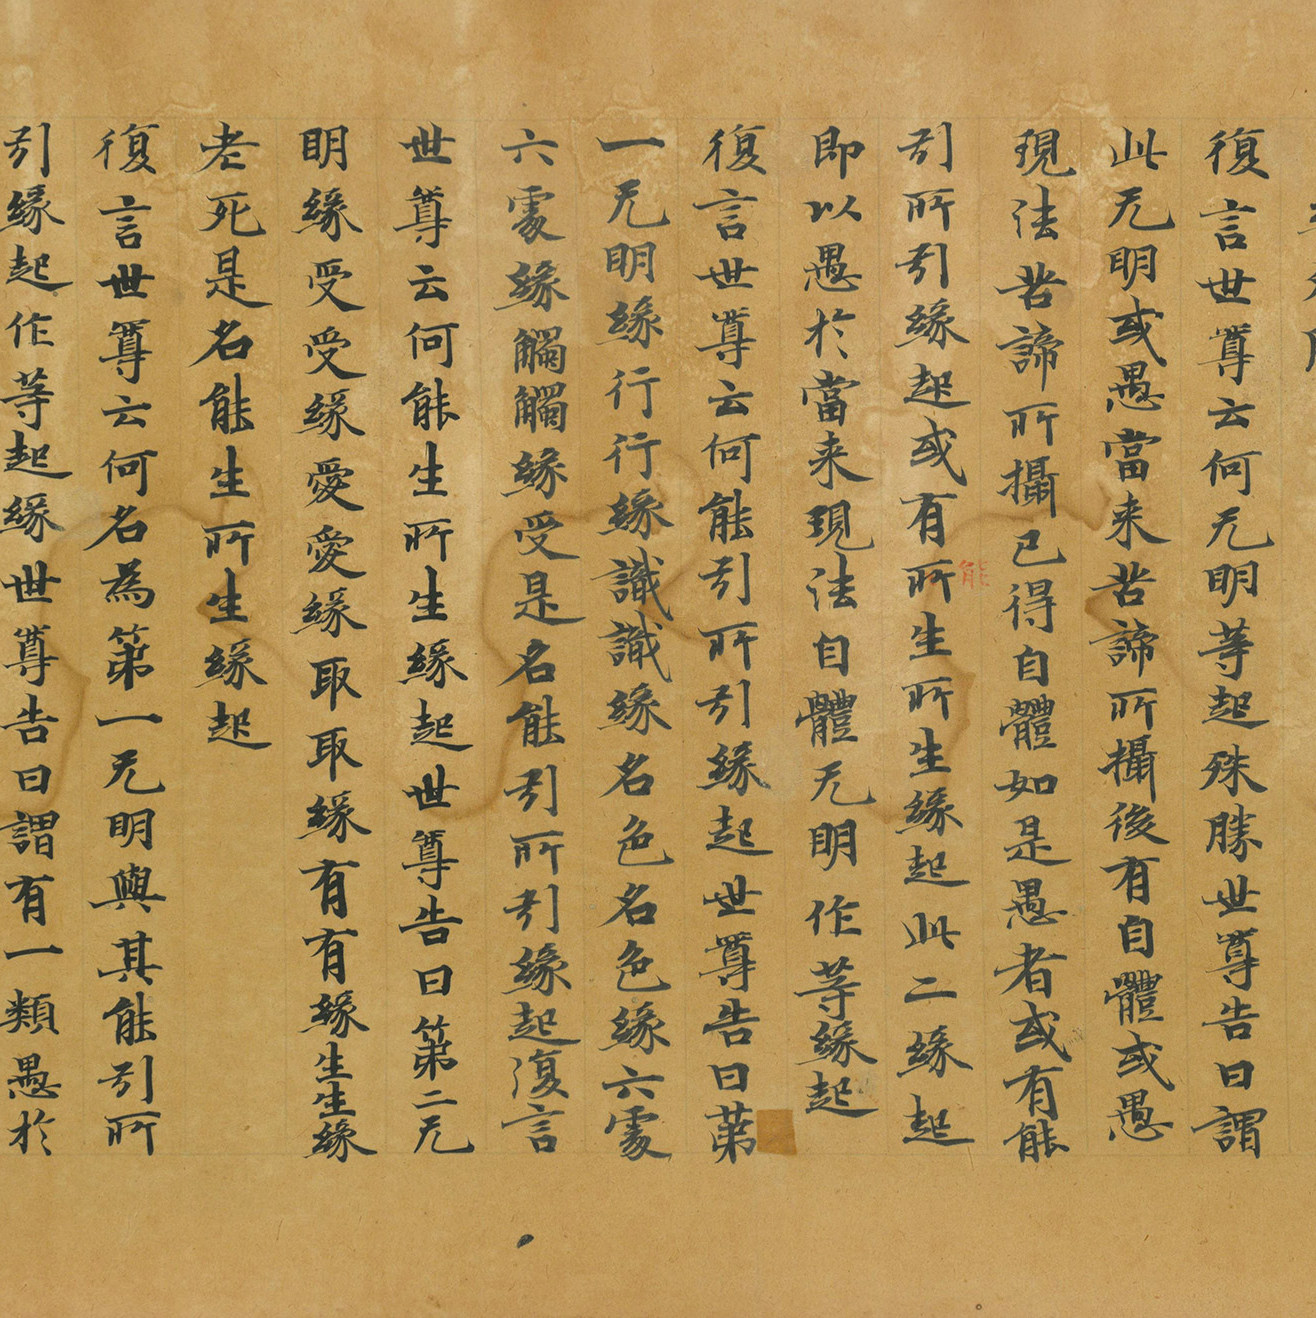 復言世尊云何无明等起殊勝世尊告曰謂
此无明或愚當来苦諦所攝後有自體或愚
現法苦諦所攝已得自體如是愚者或有能
引所引緣起或有所能生所生緣起此二緣起
即以愚於當来現法自體无明作等緣起
復言世尊云何能引所引緣起世尊告曰苐
一无明緣行行緣識識緣名色名色緣六處
六處緣觸觸緣受是名能引所引緣起復言
世尊云何能生所生緣起世尊告曰第二无
明緣受受緣愛愛緣取取緣有有緣生生緣
老死是名能生所生緣起
復言世尊云何名為第一无明與其能引所
引緣起作等起緣世尊告曰謂有一類愚於